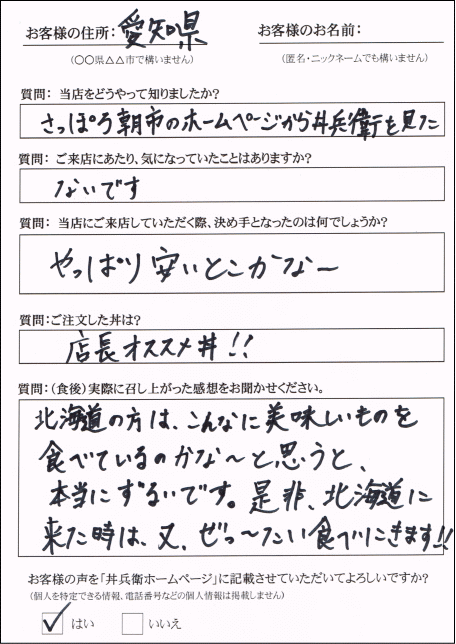 お客様の住所: 愛知県
お客様のお名前:
(○○県△△市で構いません)
(匿名・ニックネームでも構いません)
質問: 当店をどうやって知りましたか?
さっぽろ朝市のホームページから丼兵衛を見た
質問: ご来店にあたり、気になっていたことはありますか?
ないです
質問: 当店にご来店していただく際、決め手となったのは何でしょうか?
やっぱり安いとこかな~
質問:ご注文した丼は?
店長オススメ丼!!
質問:(食後)実際に召し上がった感想をお聞かせください。
北海道の方は、こんなに美味しいものを
食べているのかな~と思うと、
本当にずるいです。是非、北海道に
来た時は、又、ぜっ~たい食べにきます!!
お客様の声を「丼兵衛ホームページ」に記載させていただいてよろしいですか?
(個人を特定できる情報、電話番号などの個人情報は掲載しません)
はい いいえ